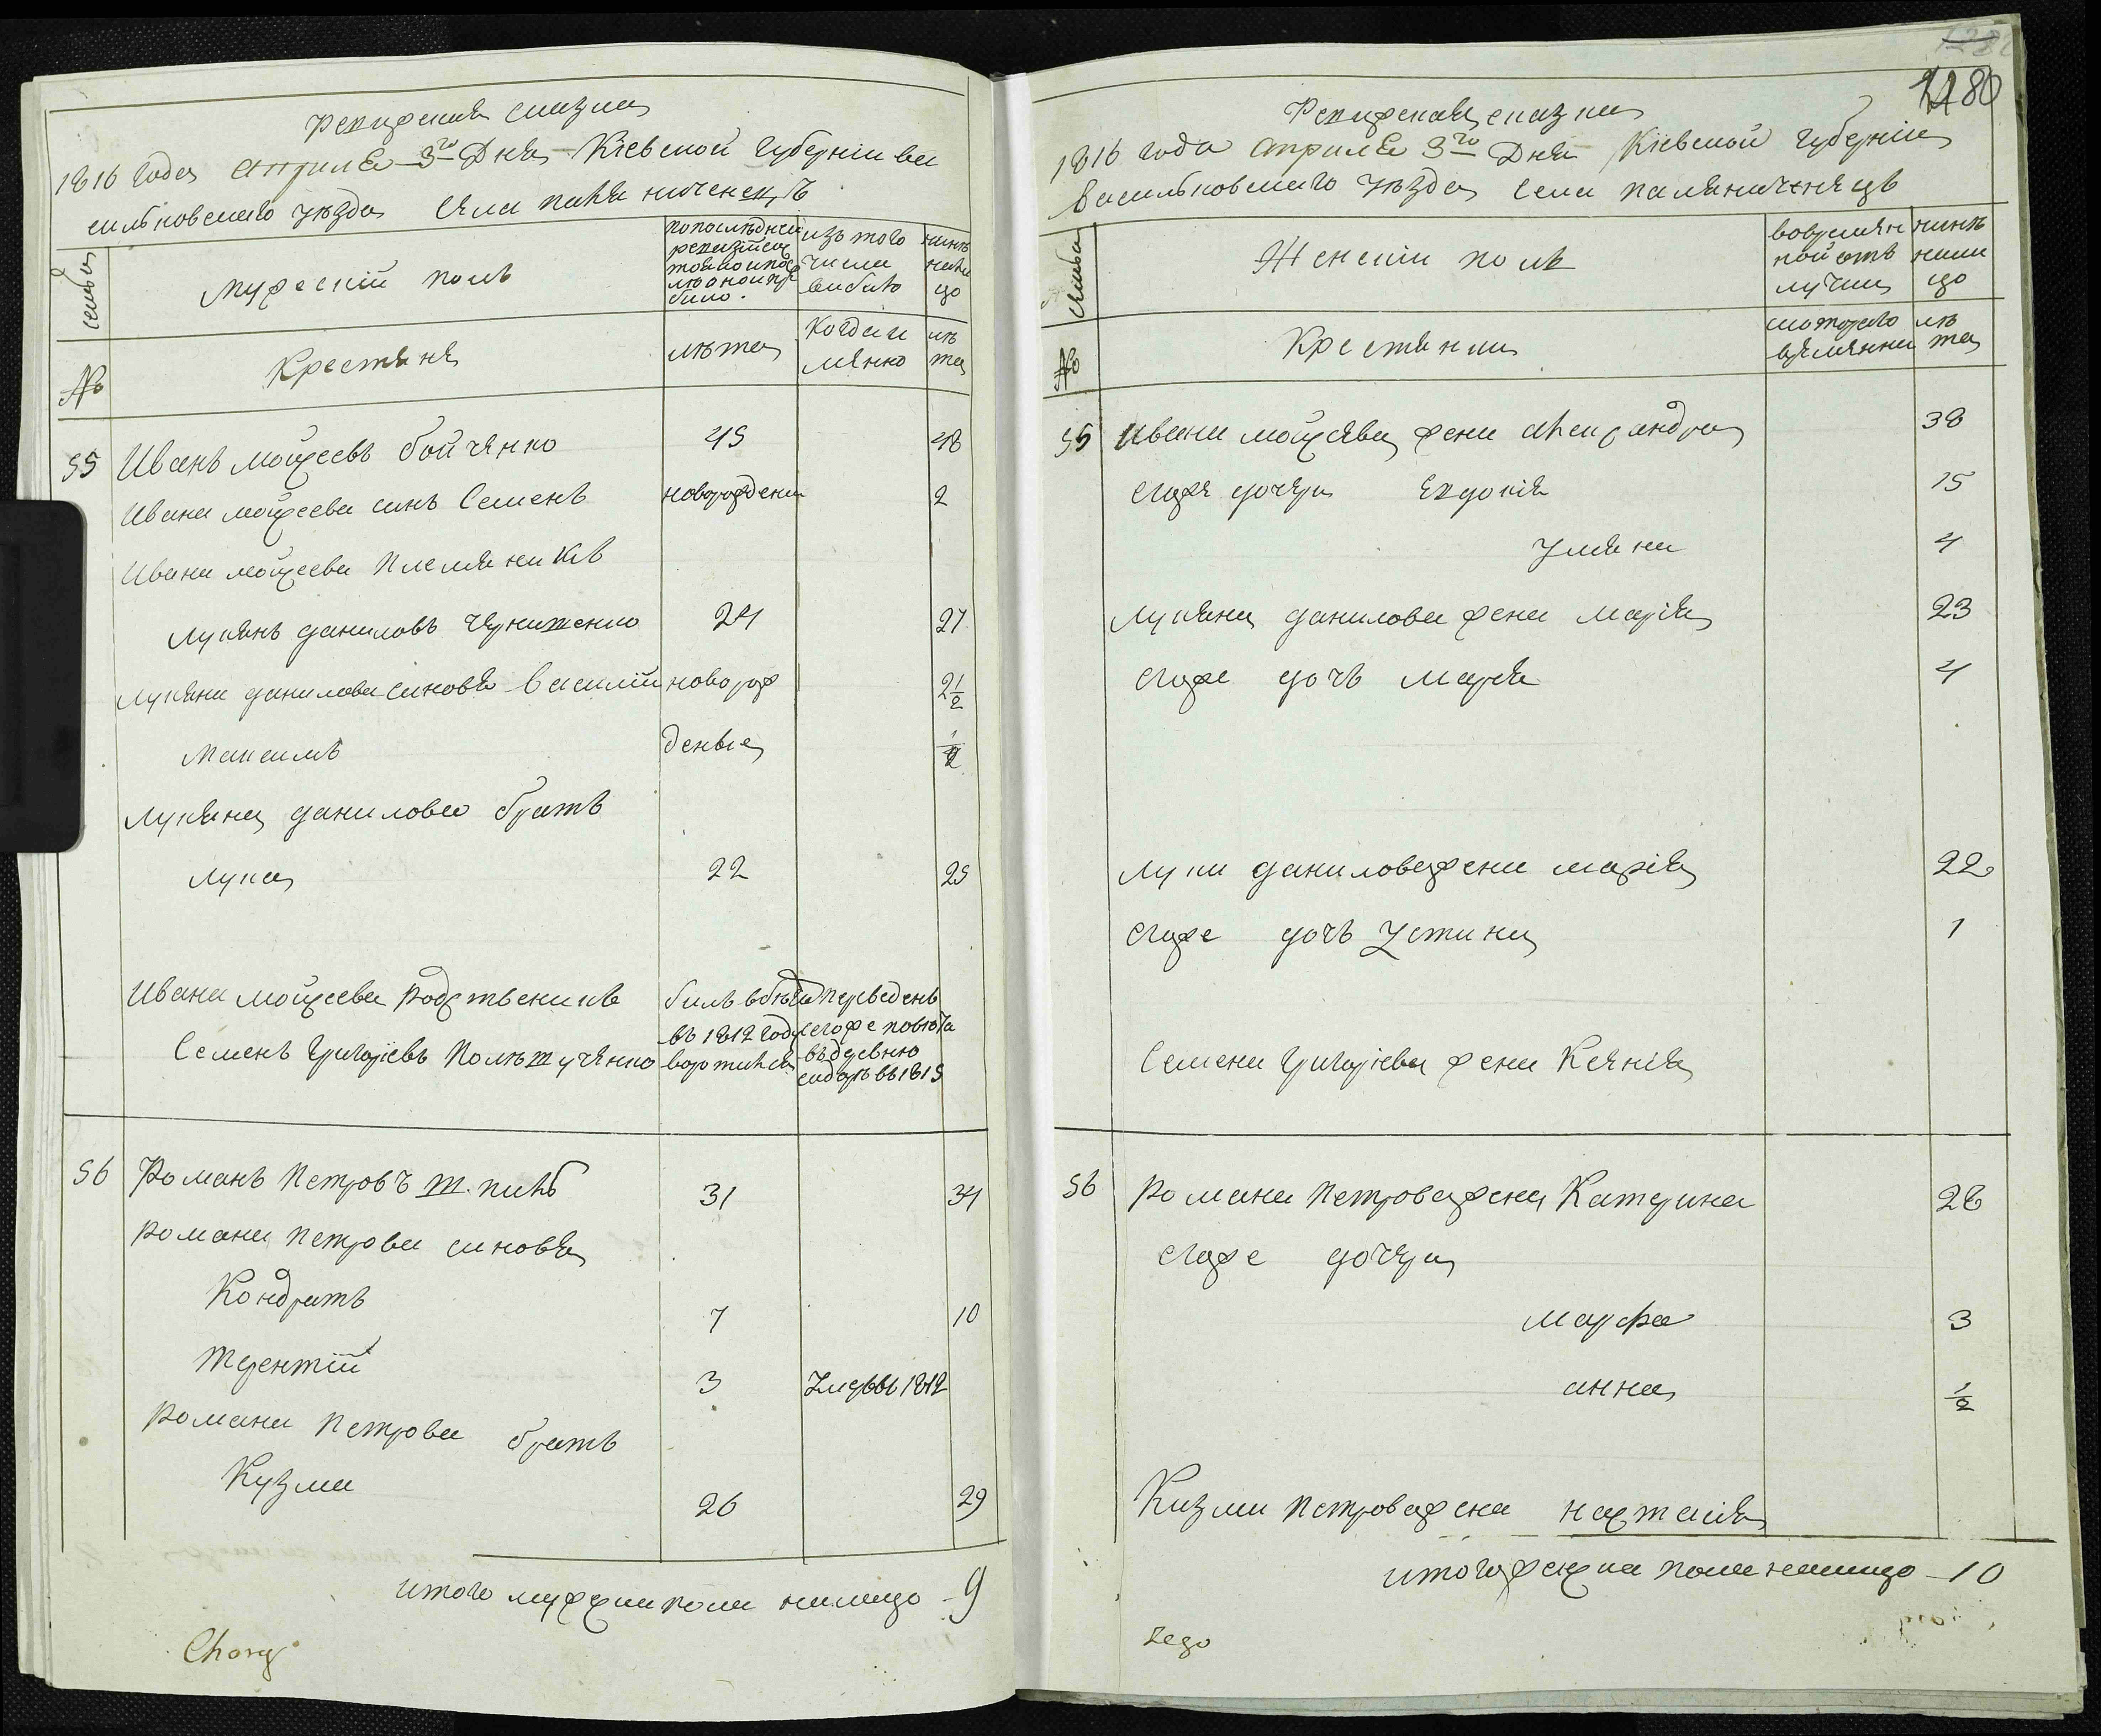 Ревизская сказка
1816 года апреля 3го дня Кіевской Губерніи Ва
сильковского уезда села
семья
мужескій полъ
по последней
ревизіи со
стояло и после
оной при
было
изъ того
числа
выбыло
ныне
нали
цо
№
Крестяне
лета
Когда и
мянно
ле
та
55 Иванъ Мойсеевъ Бойченко 45 48
Ивана Мойсеева синъ Семенъ новорожденн 2
Ивана Мойсеева племяникъ
Лукянъ Даниловъ 24 27
Лукяна Данилова синовя Василій новорож 2 1/2
Максимъ денные 1/2
Лукяна Данилова братъ
Лука 22 25
Ивана Мойсеева родственикъ
Семенъ Григоріевъ
въ 1812 году
переведенъ
въ деревню
въ 1815
56 Романъ Петровъ 31 34
Романа Петрова синовя
Кондратъ 7 10
Терентій 3 Умеръ въ 1812
Романа Петрова братъ
Кузма 26 29
итого мужеска пола налицо 9
Chory
1280
Ревизская сказка
1816 года апреля 3го дня Кіевской Губерніи
Васильковского уезда села Паляниченецъ
семья
Женскій полъ
во времян
ной отъ
лучки
ныне
нали
цо
№
Крестянки
с которого
времянни
ле
та
55 Ивана Мойсеева жена Александра 38
егоже дочери Евдокія 15
Уляна 4
Лукяна Данилова жена Марія 23
егоже дочь Маря 4
Луки Данилова жена Марія 22
егоже дочь Устина 1
Семена Григоріева жена Ксенія
56 Романа Петрова жена Катерина 28
егоже дочери
Марфа 3
анна 1/2
Кизми Петрова жена Настасія
итого женска пола налицо 10
zego